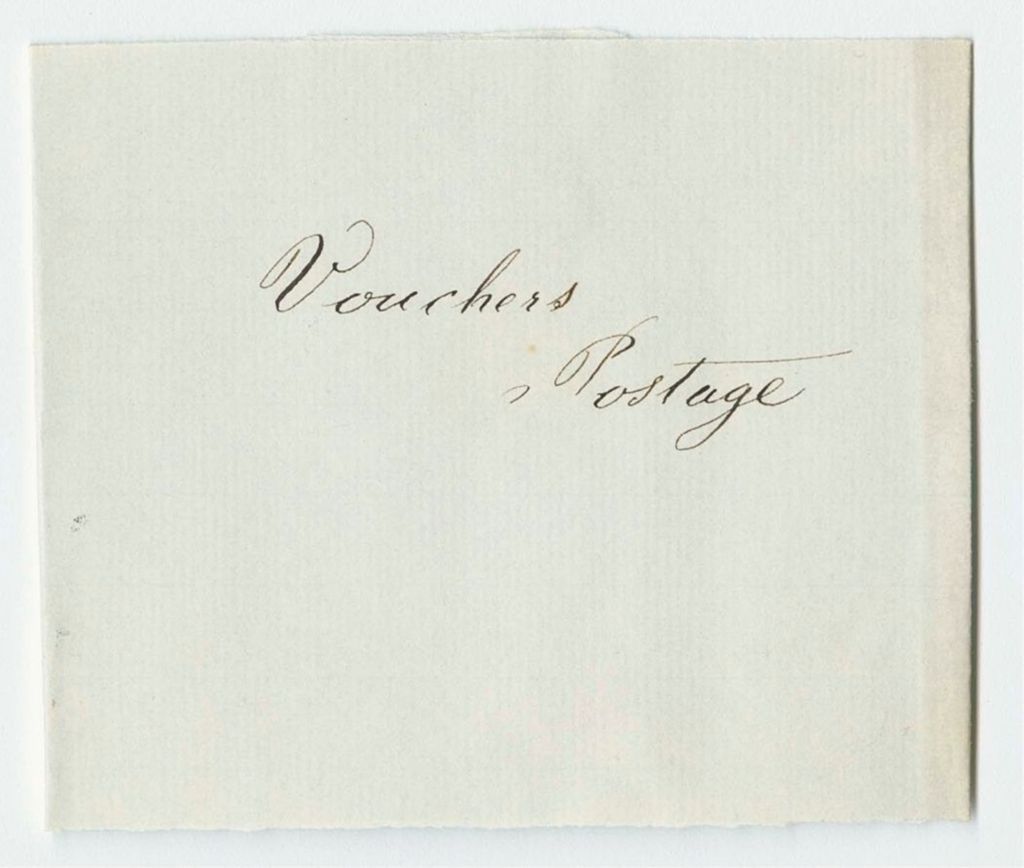 Vouchers
Postage